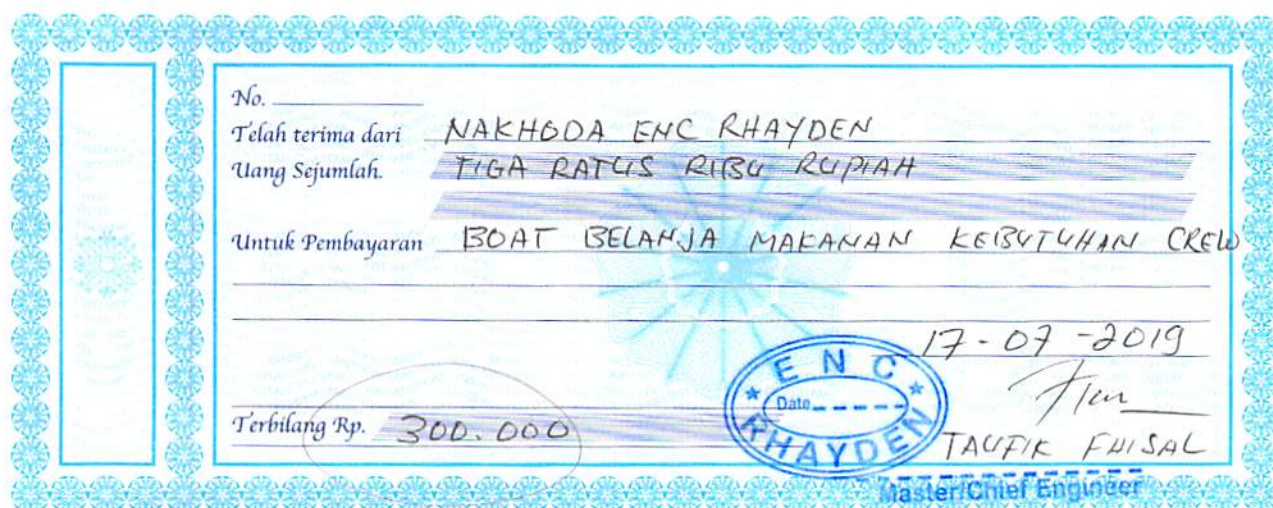 No.
Telah terima dari NAKHODA ENC RHAYDEN
Uang Sejumlah. TIGA RATUS RIBU RUPIAH
Untuk Pembayaran BOAT BELANJA MAKANAN KEBUTUHAN CREW
17-07-2019
ENC RHAYDEN
Date
Terbilang Rp. 300.000
TAUFIK FHISAL
Master/Chief Engineer